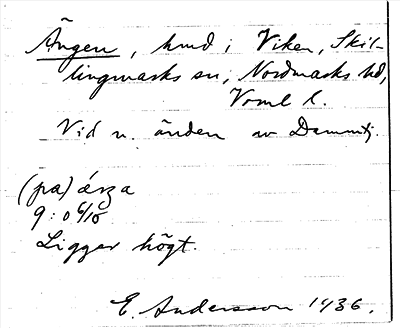 Ängen, hmd i Viken, Skil-
lingmarks sn, Nordmarks hd,
Vrml l.
Vid n. änden av Dammtj.
(pa)
9:0
Ligger högt.
E. Andersson 1936.